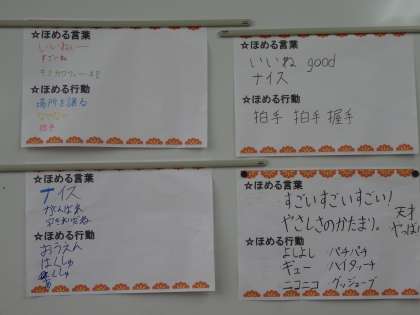 ☆ほめる言葉
いいねぃー
すごいね
☆ほめる行動
場所を譲る
拍手
☆ほめる言葉
いいね good
ナイス
☆ほめる行動
拍手 拍手 握手
☆ほめる言葉
ナイス
がんばれ
☆ほめる行動
おうえん
はくしゅ
☆ほめる言葉
すごいすごいすごい!
やさしさのかたまり。
天才
やっぱ
☆ほめる行動
よしよし パチパチ
ギュー ハイタッチ
ニコニコ グッジョーブ